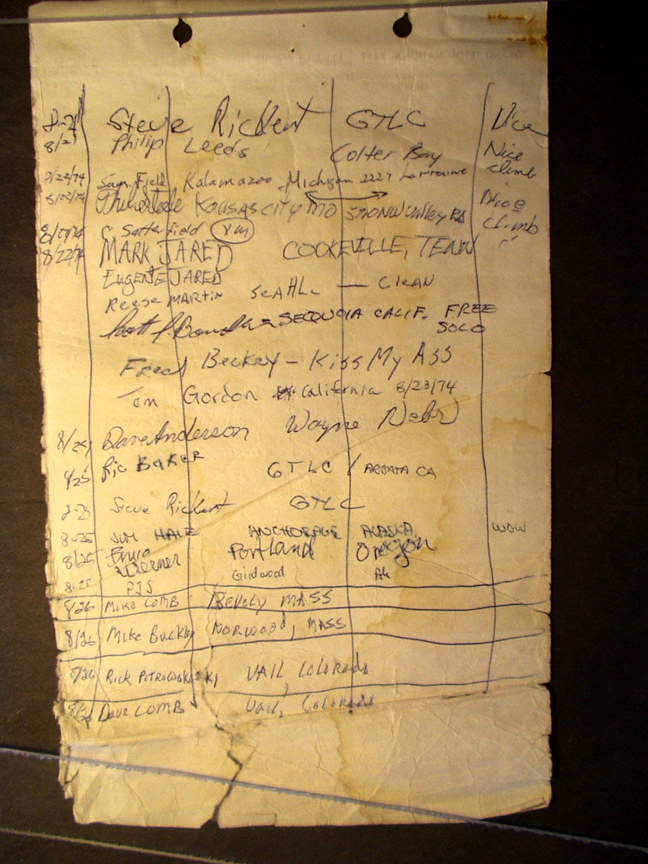 Steve Rickert GTLC Nice
8/21 Philip Leeds Colter Bay Nice climb
8/22/74 Sam Field Kalamazoo, Michigan 2227 Lorraine
Kansas City Mo Nice climb
C. Satterfield
8/22/74 MARK JARED COOKEVILLE, TENN
EUGENE JARED
Reese MARTIN SeAttle — CleAN
Scott SEQUOIA CALIF. FREE SOLO
Fred Beckey - Kiss My Ass
Tom Gordon California 8/23/74
8/24 Dave Anderson Wayne Nebr
8/25 Ric BAKER GTLC / ARCATA CA
Steve Rickert GTLC
8-25 JIM HALE ANCHORAGE ALASKA WOW
8/25 Bruce Werner Portland Oregon
8-25 PJS Girdwood Ak
8/26 MIKE COMB Bevely MASS
8/26 Mike Buckley NORWOOD, MASS
8/26 RICK PETROWSKI VAIL Colorado
8/26 Dave COMB Vail, Colorado